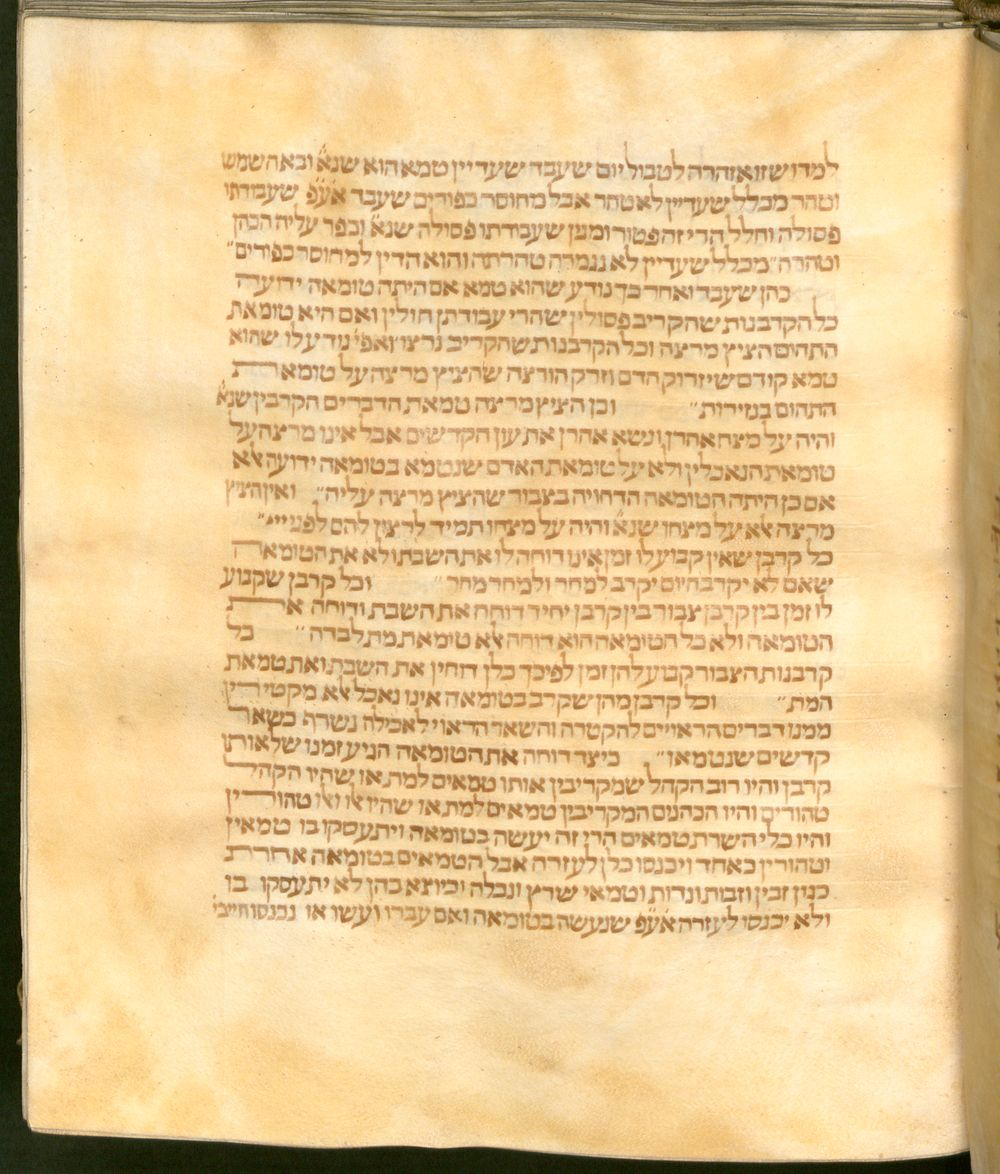 למדו שזו אזהרה לטבול יום שעבד שעדיין טמא הוא שנא׳ ובא השמש
וטהר מכלל שעדיין לא טהר אבל מחוסר כפורים שעבד אע״פ שעבודתו
פסולה וחלל הרי זה פטור ומנין שעבודתו פסולה שנא׳ וכפר עליה הכהן
וטהרה״ מכלל שעדיין לא נגמרה טהרתה והוא הדין למחוסר כפורים״
כהן שעבד ואחר כך נודע שהוא טמא אם היתה טומאה ידועה
כל הקרבנות שהקריב פסולין שהרי עבודתן חולין ואם היא טומאת
התהום הציץ מרצה וכל הקרבנות שהקריב נרצו ואפי׳ נודע לו שהוא
טמא קודם שיזרוק הדם וזרק הורצה שהציץ מרצה על טומאת
התהום בנזירות״ וכן הציץ מרצה טמאת הדברים הקרבין שנא׳
והיה על מצח אהרן ונשא אהרן את עון הקדשים אבל אינו מרצה על
טומאת הנאכלין ולא על טומאת האדם שנטמא בטומאה ידועה אלא
אם כן היתה הטומאה הדחויה בצבור שהציץ מרצה עליה״ ואין הציץ
מרצה אלא על מצחו שנא׳ והיה על מצחו תמיד לרצון להם לפני ייי״
כל קרבן שאין קבוע לו זמן אינו דוחה לו את השבת ולא את הטומאה
שאם לא יקרב היום יקרב למחר ולמחר מחר״ וכל קרבן שקבוע
לו זמן בין קרבן צבור בין קרבן יחיד דוחה את השבת ודוחה את
הטומאה ולא כל הטומאה הוא דוחה אלא טומאת מת לבדה״ כל
קרבנות הצבור קבוע להן זמן לפיכך כלן דוחין את השבת ואת טמאת
המת״ וכל קרבן מהן שקרב בטומאה אינו נאכל אלא מקטירין
ממנו דברים הראויים להקטרה והשאר הראוי לאכילה נשרף כשאר
קדשים שנטמאו״ כיצד דוחה את הטומאה הגיע זמנו שלאותו
קרבן והיו רוב הקהל שמקריבין אותו טמאים למת או שהיו הקהל
טהורים והיו הכהנים המקריבין טמאים למת או שהיו אלו ואלו טהורין
והיו כלי השרת טמאים הרי זה יעשה בטומאה ויתעסקו בו טמאין
וטהורין כאחד ויכנסו כלן לעזרה אבל הטמאים בטומאה אחרת
כגון זבין וזבות ונדות וטמאי שרץ ונבלה וכיוצא בהן לא יתעסקו בו
ולא יכנסו לעזרה אע״פ שנעשה בטומאה ואם עברו ועשו או נכנסו חייבי׳